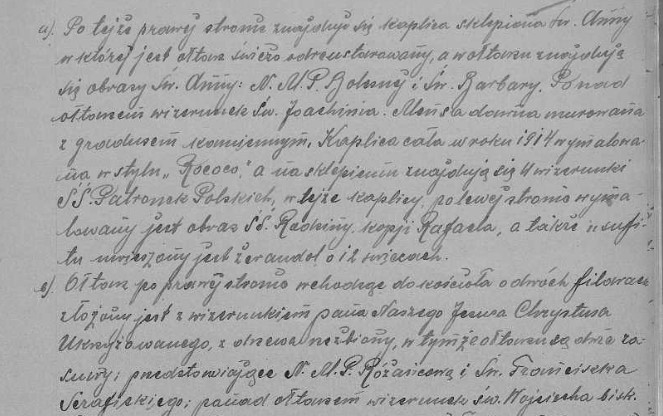 a). Po tejże prawej stronie znajduje się kaplica sklepiona Św. Anny
w której jest ołtarz świeżo odrestarowany, a w ołtarzu znajdują
się obrazy Św. Anny: N. M. P. Bolesnej i Św. Barbary. Ponad
ołtarzem wizerunek Św. Joachima. Mensa dawna murowana
z gradusem kamiennym. Kaplica cała w roku 1914 wymalowa-
na w stylu „Rococo," a na sklepieniu znajdują się 4 wizerunki
Ś.Ś. Patronek Polskich, w tejże kaplicy, po lewej stronie wyma-
lowany jest obraz Ś.Ś. Rodziny, kopji Rafaela, a także u sufi-
tu uwieszony jest żerandol o 12 świecach.
e). Ołtarz po prawej stronie wchodząc do kościoła o dwóch filarach
złożony jest z wizerunkiem pana Naszego Jezusa Chrystusa
Ukrzyżowanego, z drzewa rzeźbiony, w tymże ołtarzu są dwie za-
suwy: przedstawiające N. M. P. Różańcową i Św. Franciszka
Serafickiego; ponad ołtarzem wizerunek Św. Wojciecha bisk.